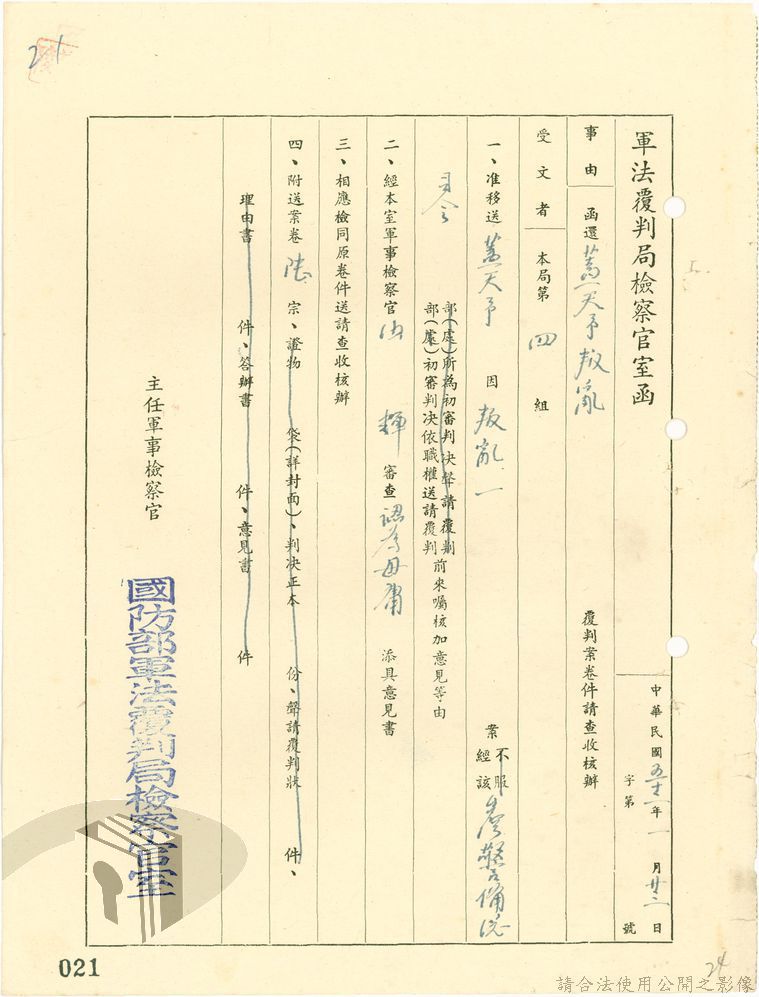 軍法覆判局檢察官室函
中華民國五十一年一月廿三日
字第號
事由 函還蓋天予叛亂 覆判案卷件請查收核辦
受文者 本局第四組
一、准移送蓋天予 因叛亂一 案
不服
經該
台灣警備總
司令
部(處)所為初審判決聲請覆判
部(處)初審判決依職權送請覆判
前來囑核加意見等由
二、經本室軍事檢察官 輝 審查認為毋庸 添具意見書
三、相應檢同原卷件送請查收核辦
四、附送案卷 陸 宗、證物 袋(詳封面)、判決正本 份、聲請覆判狀 件、
理由書 件、答辯書 件、意見書 件
主任軍事檢察官
國防部軍法覆判局檢察官室
021
24
請合法使用公開之影像